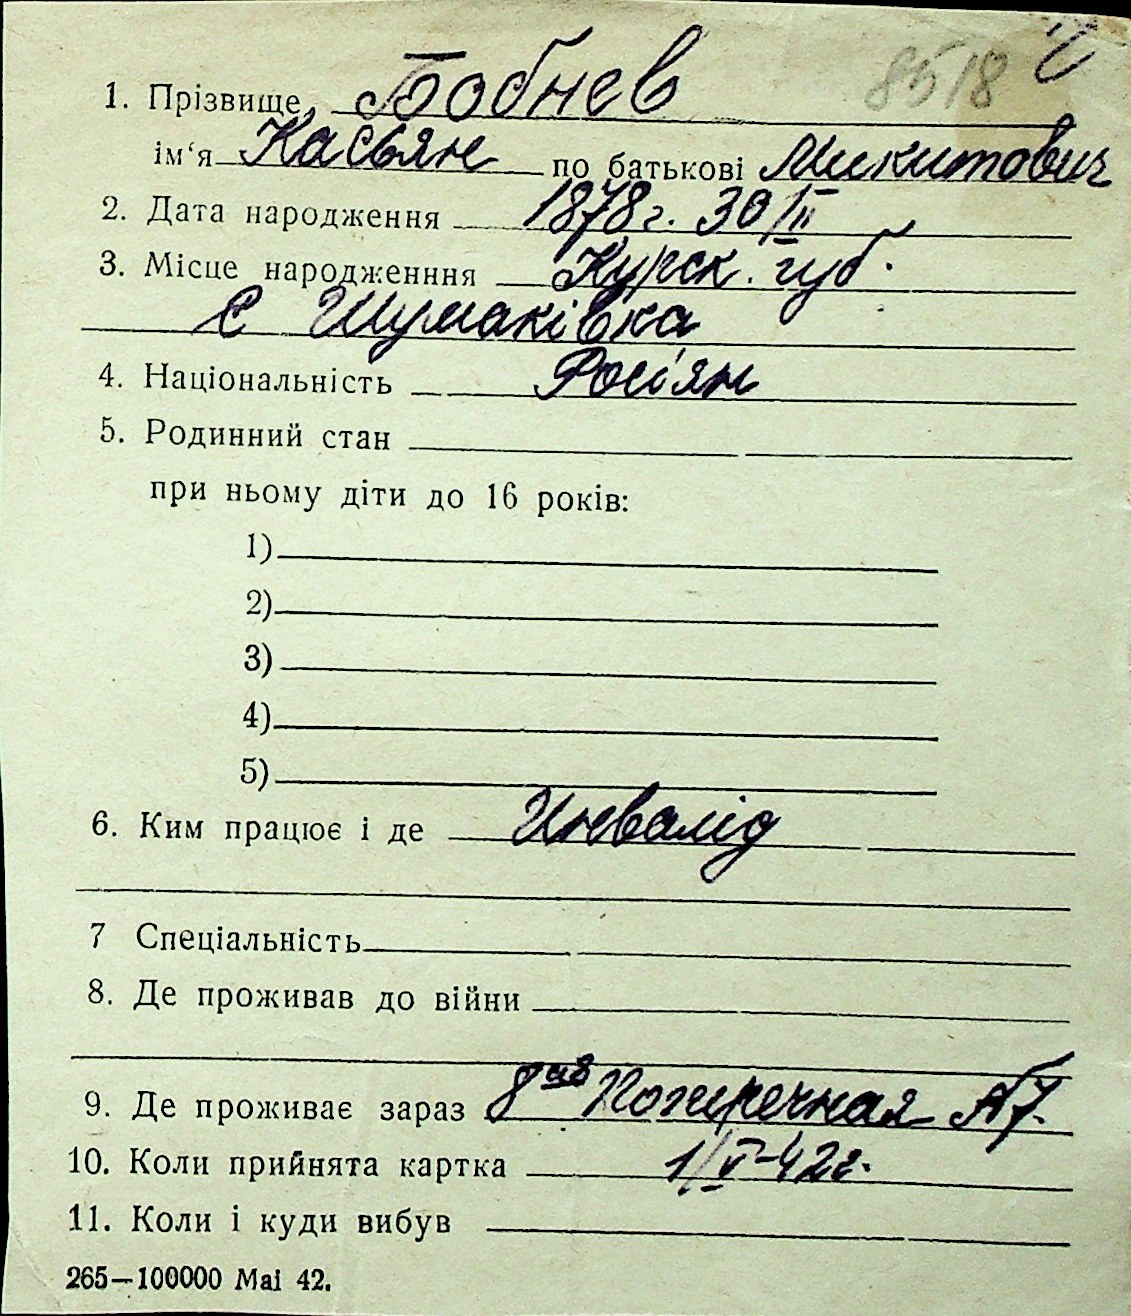 8518
1. Прізвище Бобнев
ім‘я Касьян по батькові Микитович
2. Дата народження 1878 г. 30/II
3. Місце народженння Курск. губ.
с Шумаківка
4. Національність Росіян
5. Родинний стан
при ньому діти до 16 років:
1)
2)
3)
4)
5)
6. Ким працює і де Инвалід
7 Спеціальність
8. Де проживав до війни
9. Де проживає зараз 8 ая Поперечная № 7.
10. Коли прийнята картка 1/V-42 г.
11. Коли і куди вибув
265—100000 Маі 42.